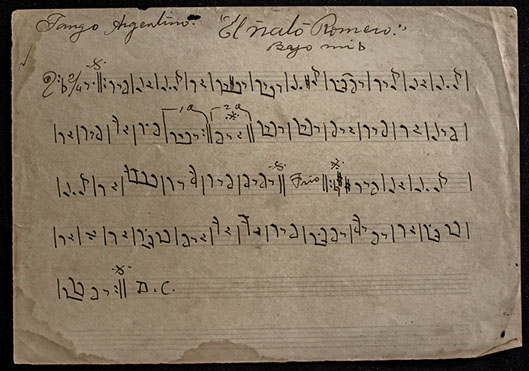 Tango Argentino. "El ñato Romero."
Bajo mi b
2/4
1a 2a
Trio
D.C.